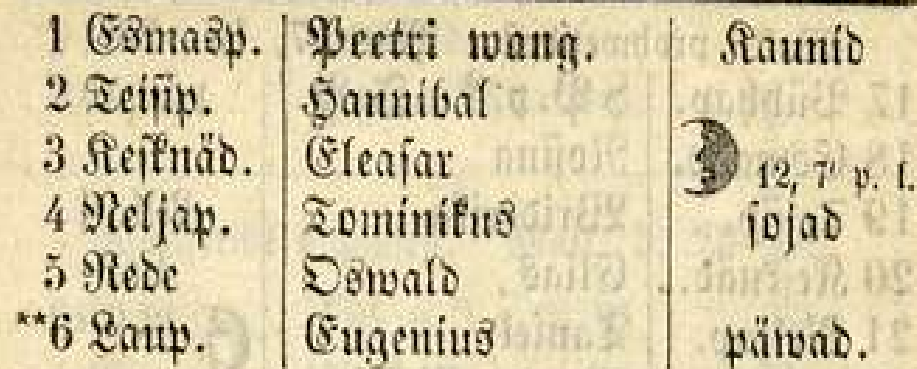 1 Esmasp. Peetri wang. Kaunid
2 Teisip. Hannibal
3 Kesknäd. Eleasar 12, 7' p. l.
4 Neljap. Tominikus sojad
5 Rede Oswald
**6 Laup. Eugenius päwad.